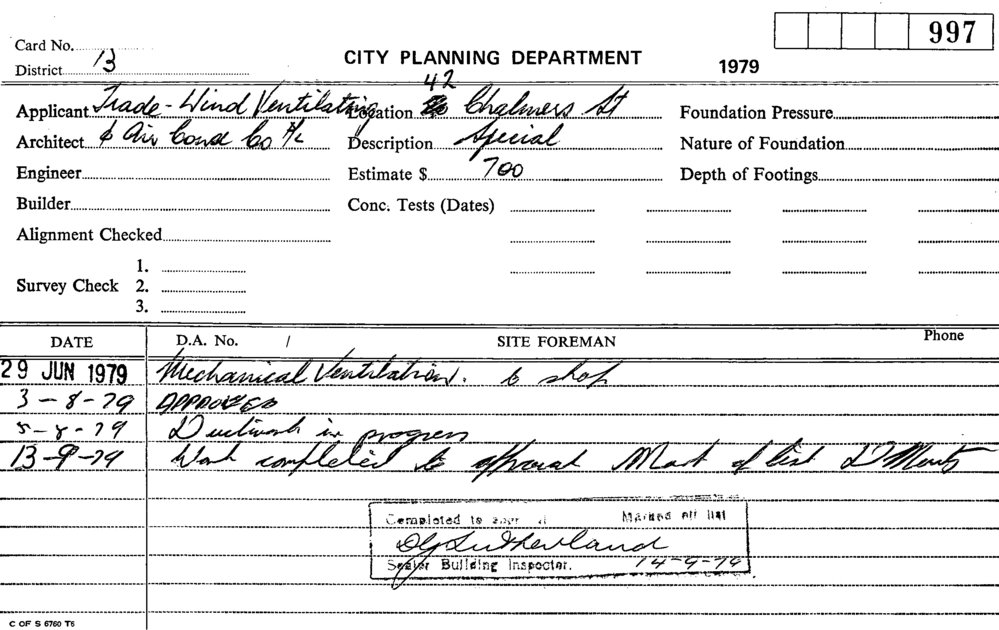 997
Card No.
CITY PLANNING DEPARTMENT
District 13
1979
Applicant Trade-Wind Ventilating Location 42 Chalmers St Foundation Pressure
Architect & Air Cond Co P/L Description Special Nature of Foundation
Engineer Estimate $ 700 Depth of Footings
Builder Conc. Tests (Dates)
Alignment Checked
1.
Survey Check 2.
3.
DATE D.A. No. / SITE FOREMAN Phone
29 JUN 1979 Mechanical Ventilation. to shop
3-8-79 APPROVED
8-79 Ductwork in progress
13-9-79 Work completed to approval Mark off list
Completed to Marked off list
DG Sutherland
Senior Building Inspector. 14-9-79
C OF S 6760 T6